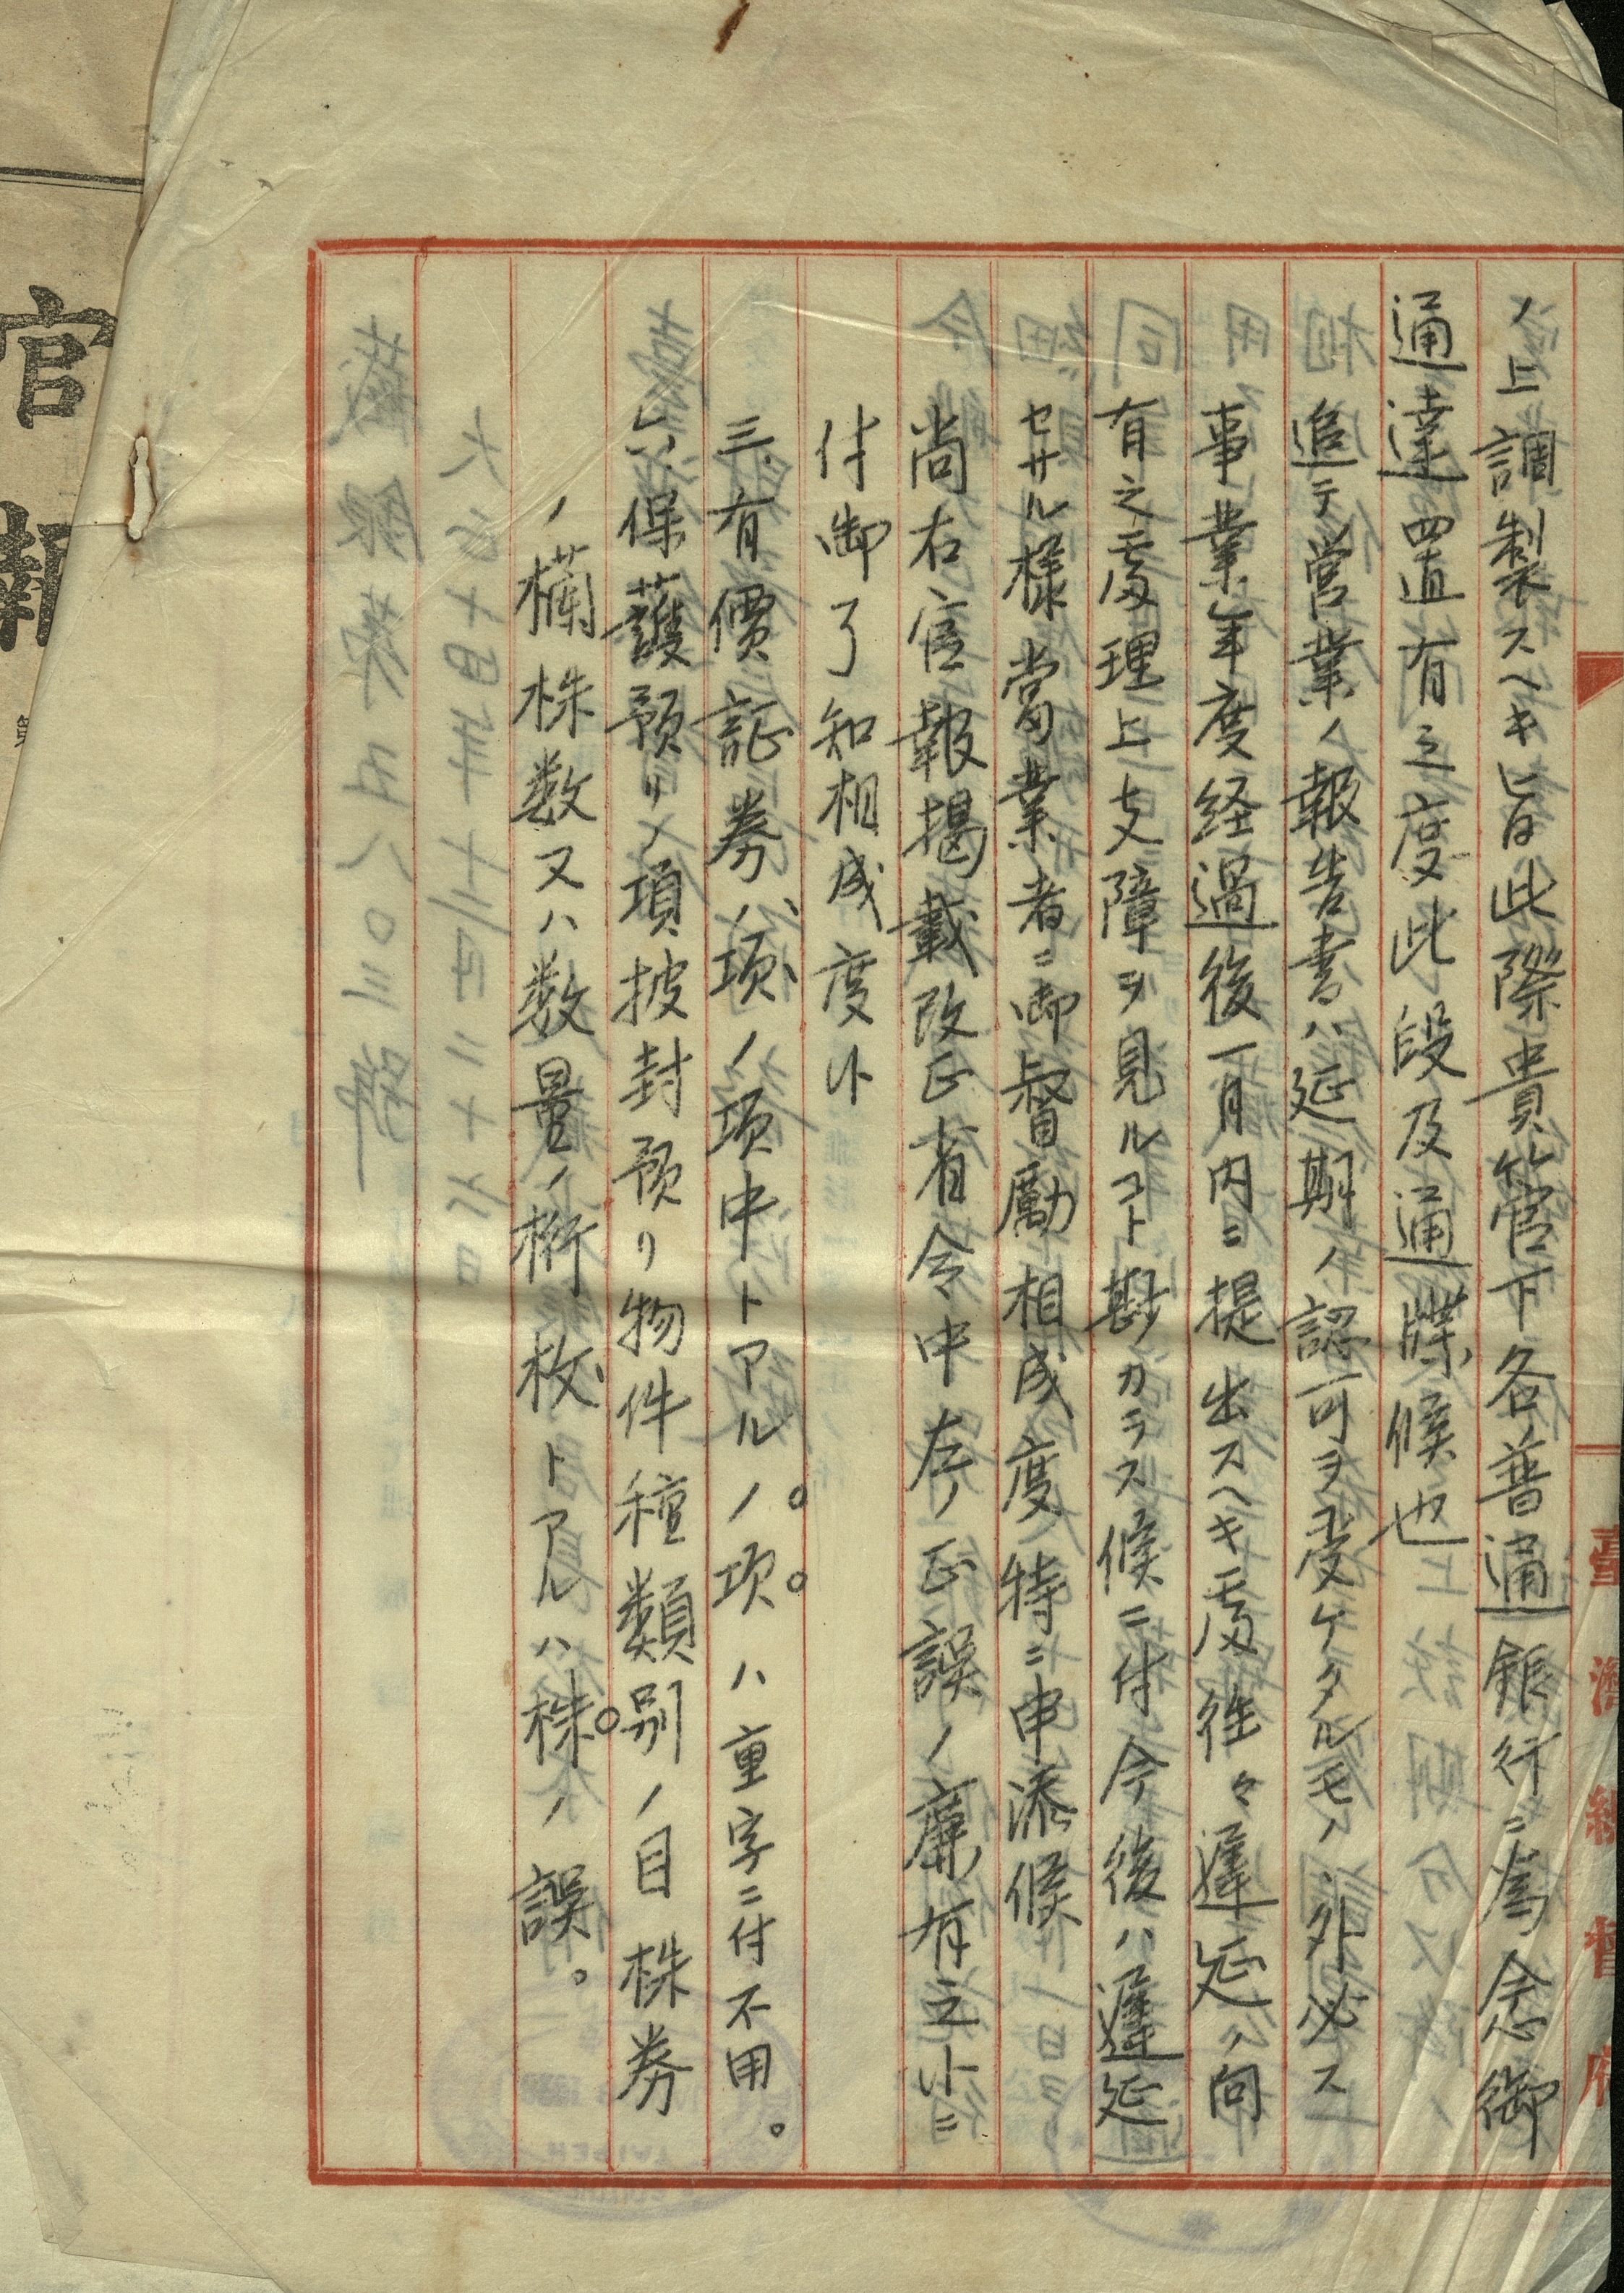 ノ上調製スヘキ旨此際貴管下各普通銀行ニ為念御
通達四置有之度此段及通牒候也
追テ営業ノ報告書ハ延期ノ認可ヲ受ケタルモノノ外必ス
事業年度経過後一月内ニ提出スヘキ處往々遅延ノ向
有之處理上支障ヲ見ルコト尠カラス候ニ付今後ハ遅延
セサル樣當業者ニ御督勵相成度特ニ申添候
尚右官報掲載改正省令中左ノ正誤ノ廉有之候ニ
付御了知相成度候
三、有價証券ノ項ノ項中トアルノ項ハ重字ニ付不用。
六、保護預リノ項披封預リ物件種類別ノ目株券
ノ欄株数又ハ数量ノ桁枚トアルハ株ノ誤。
臺灣總督府
官報
第